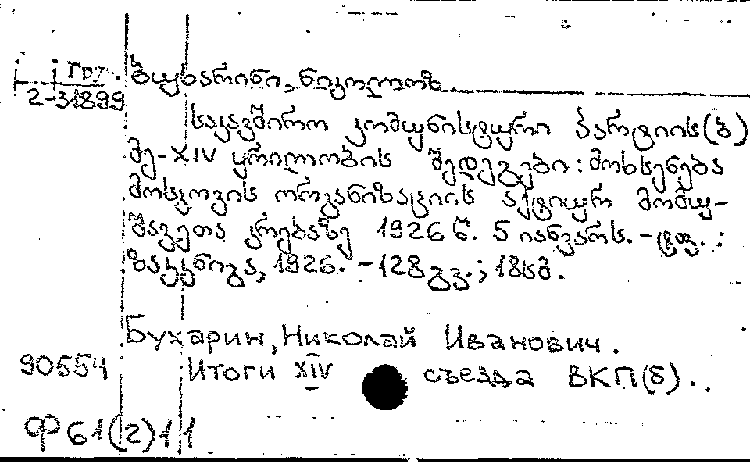 ГРТ. ბუხარინი, ნიკოლოზ
2-31899
საკავშირო კომუნისტური პარტიის(ბ)
მე-XIV ყრილობის შედეგები: მოხსენება
მოსკოვის ორგანიზაციის აქტიურ მომუ-
შავეთა კრებაზე 1926 წ. 5 იანვარს. - ტფ. :
ზაკკნიგა, 1926. - 128 გვ.; 18სმ.
Бухарин, Николай Иванович.
90554 Итоги XIV съезда ВКП(б)..
Ф61(2)11